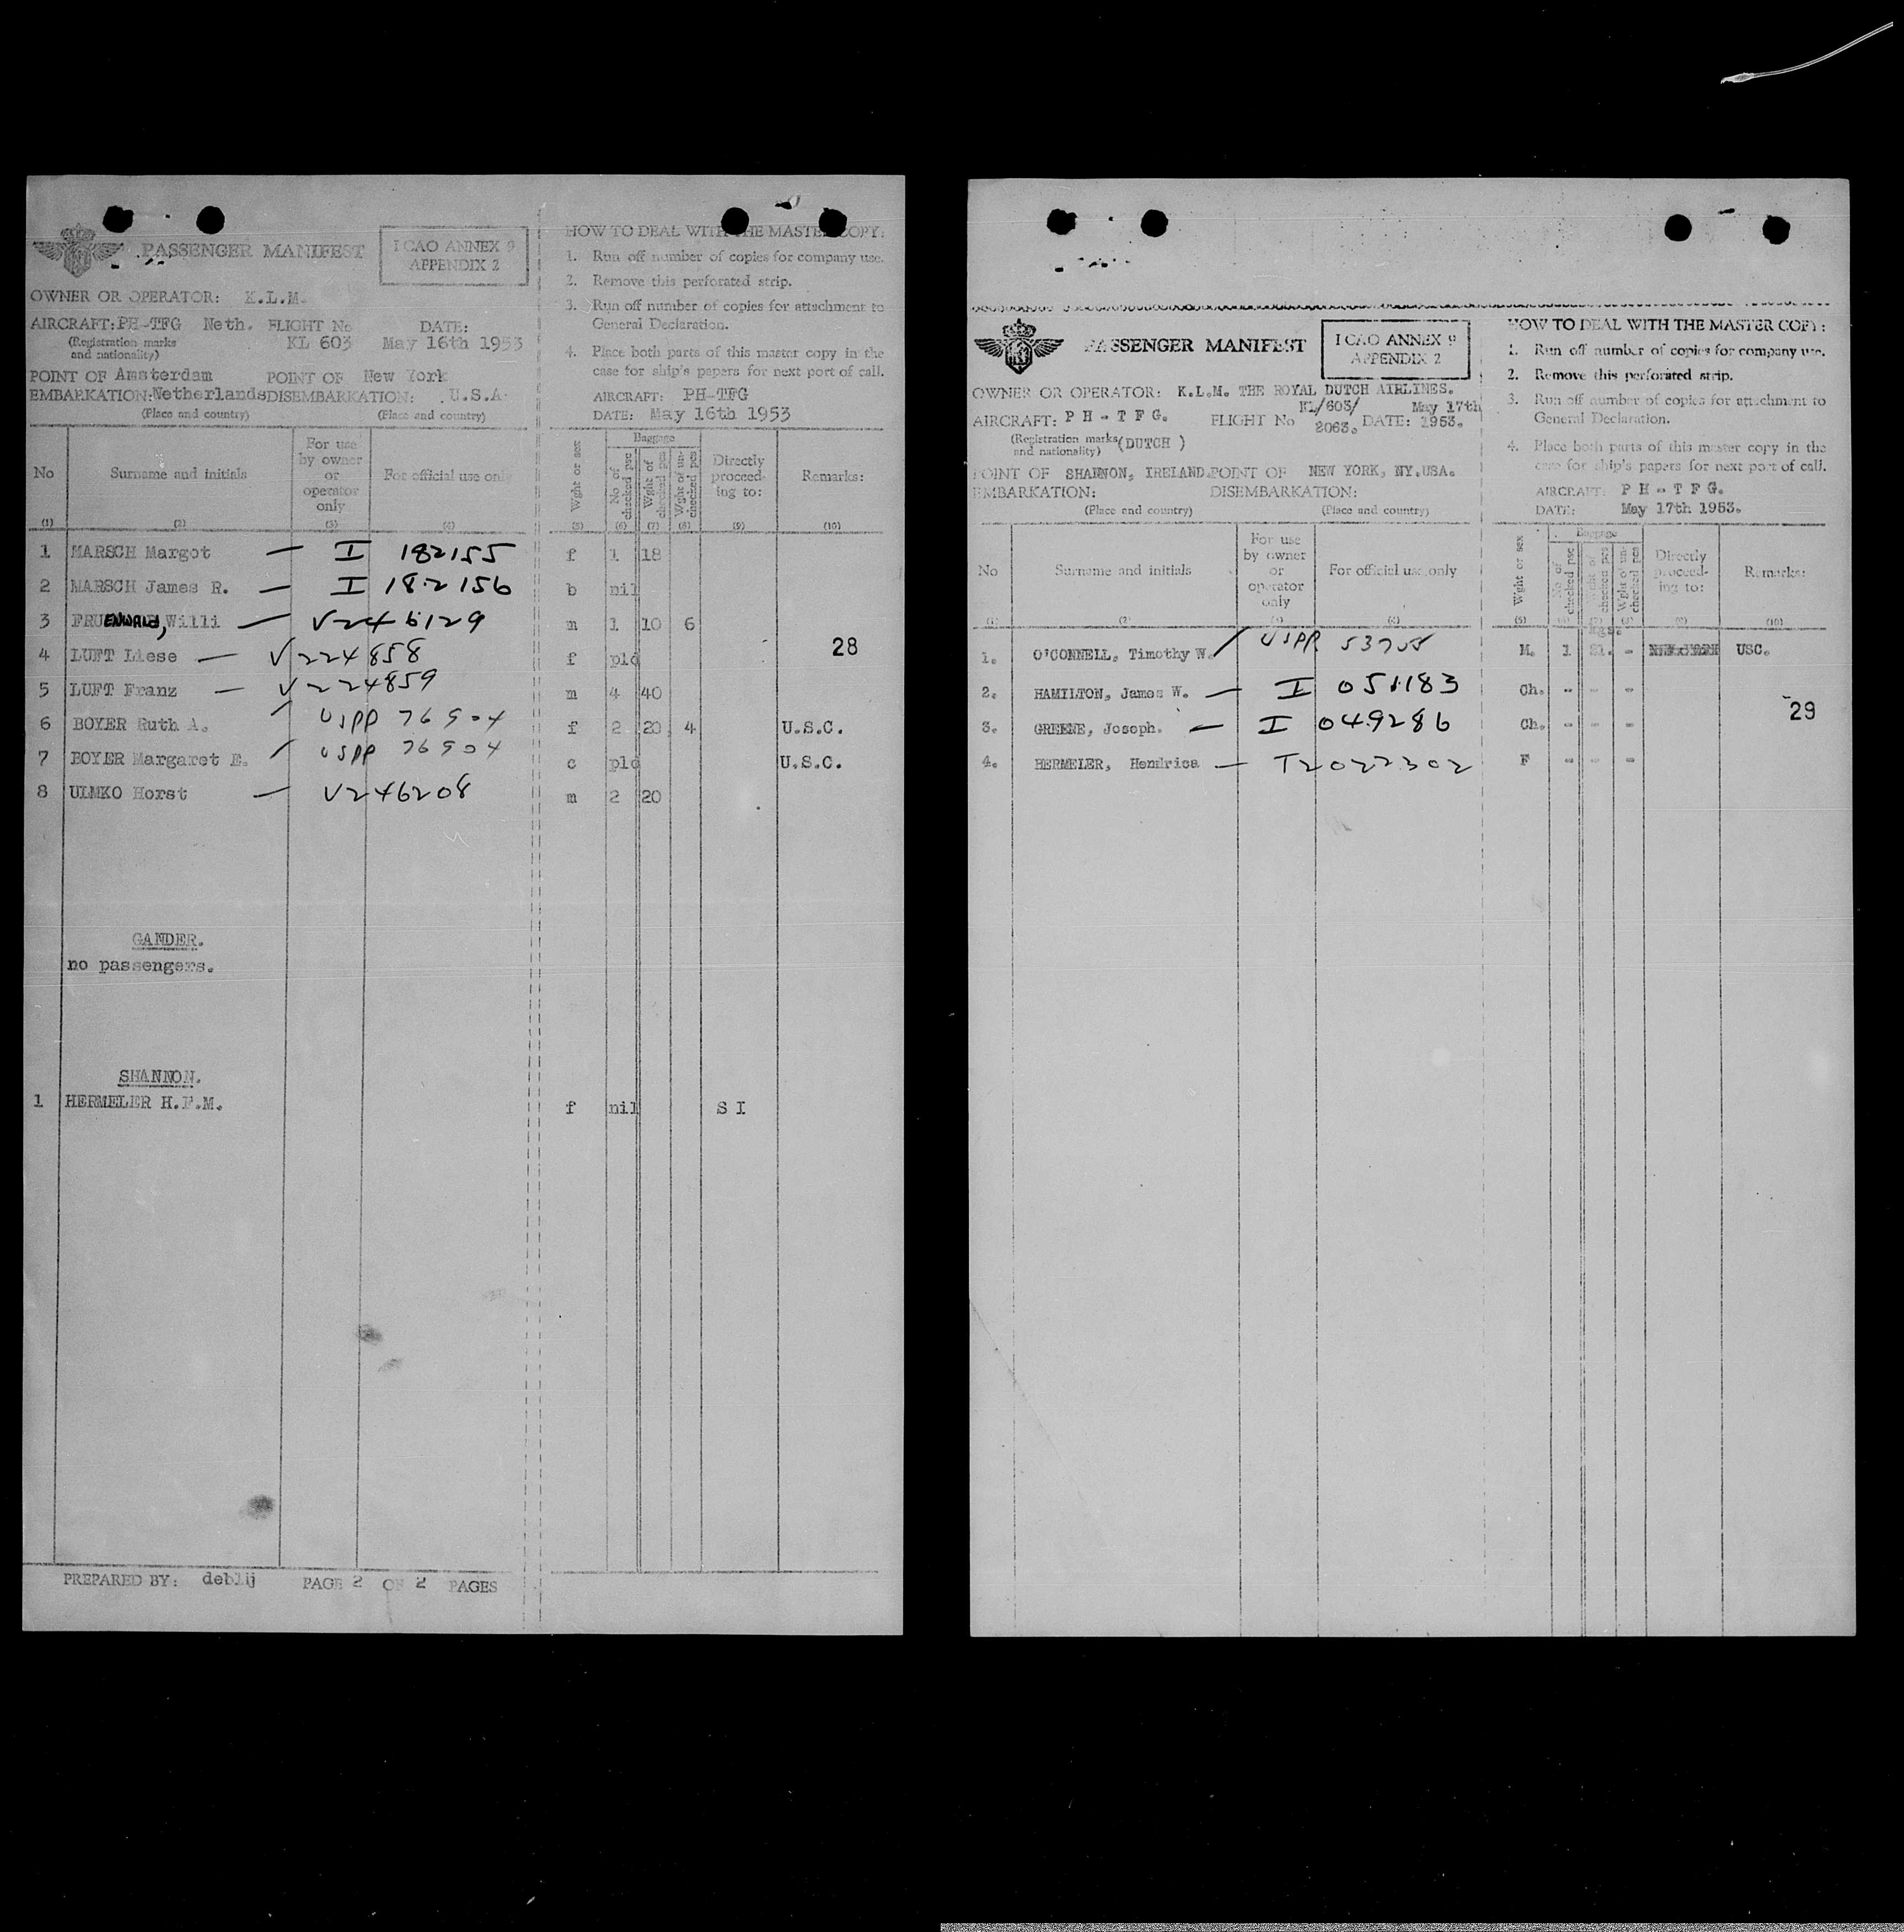 PASSENGER MANIFEST
I CAO ANNEX 9
APPENDIX 2
OWNER OR OPERATOR: K.L.M.
AIRCRAFT: PH-TFG Neth. FLIGHT No DATE:
(Registration marks and nationality) KL 603 May 16th 1953
POINT OF Amsterdam POINT OF New York
EMBARKATION: Netherlands DISEMBARKATION: U.S.A.
(Place and country) (Place and country)
HOW TO DEAL WITH THE MASTER COPY:
1. Run off number of copies for company use.
2. Remove this perforated strip.
3. Run off number of copies for attachment to
General Declaration.
4. Place both parts of this master copy in the
case for ship's papers for next port of call.
AIRCRAFT: PH-TFG
DATE: May 16th 1953
No Surname and initials For use by owner or operator only For official use only Wght or sex Baggage No of checked pcs Wght of checked pcs Wght of un-checked pcs Directly proceed-ing to: Remarks:
(1) (2) (3) (4) (5) (6) (7) (8) (9) (10)
1 MARSCH Margot — I 182155 f 1 18
2 MARSCH James R. — I 182156 b nil
3 FRUENWALD, Willi — V246129 m 1 10 6
28
4 LUFT Liese — V224858 f pld
5 LUFT Franz — V224859 m 4 40
6 BOYER Ruth A. / USPP 76904 f 2 20 4 U.S.C.
7 BOYER Margaret E. / USPP 76904 c pld U.S.C.
8 ULMKO Horst — V246208 m 2 20
GANDER.
no passengers.
SHANNON.
1 HERMELER H.F.M. f nil S I
PREPARED BY: deblij PAGE 2 OF 2 PAGES
PASSENGER MANIFEST
I CAO ANNEX 9
APPENDIX 2
OWNER OR OPERATOR: K.L.M. THE ROYAL DUTCH AIRLINES.
AIRCRAFT: P H - T F G. FLIGHT No KL/603/ 2063. DATE: May 17th 1953.
(Registration marks and nationality) (DUTCH )
POINT OF SHANNON, IRELAND. POINT OF NEW YORK, NY.USA.
EMBARKATION: DISEMBARKATION:
(Place and country) (Place and country)
HOW TO DEAL WITH THE MASTER COPY:
1. Run off number of copies for company use.
2. Remove this perforated strip.
3. Run off number of copies for attachment to
General Declaration.
4. Place both parts of this master copy in the
case for ship's papers for next port of call.
AIRCRAFT: P H - T F G.
DATE: May 17th 1953.
No Surname and initials For use by owner or operator only For official use only Wght or sex Baggage No of checked pcs Wght of checked pcs Wght of un-checked pcs Directly proceed-ing to: Remarks:
(1) (2) (3) (4) (5) (6) (7) (8) (9) (10)
Kgs.
1. O'CONNELL, Timothy W. / USPP M. 1 - USC.
2. HAMILTON, James W. — I 051183 Ch. - - -
29
3. GREENE, Joseph. — I 049286 Ch. - - -
4. HERMELER, Hendrica — T2022302 F - - -